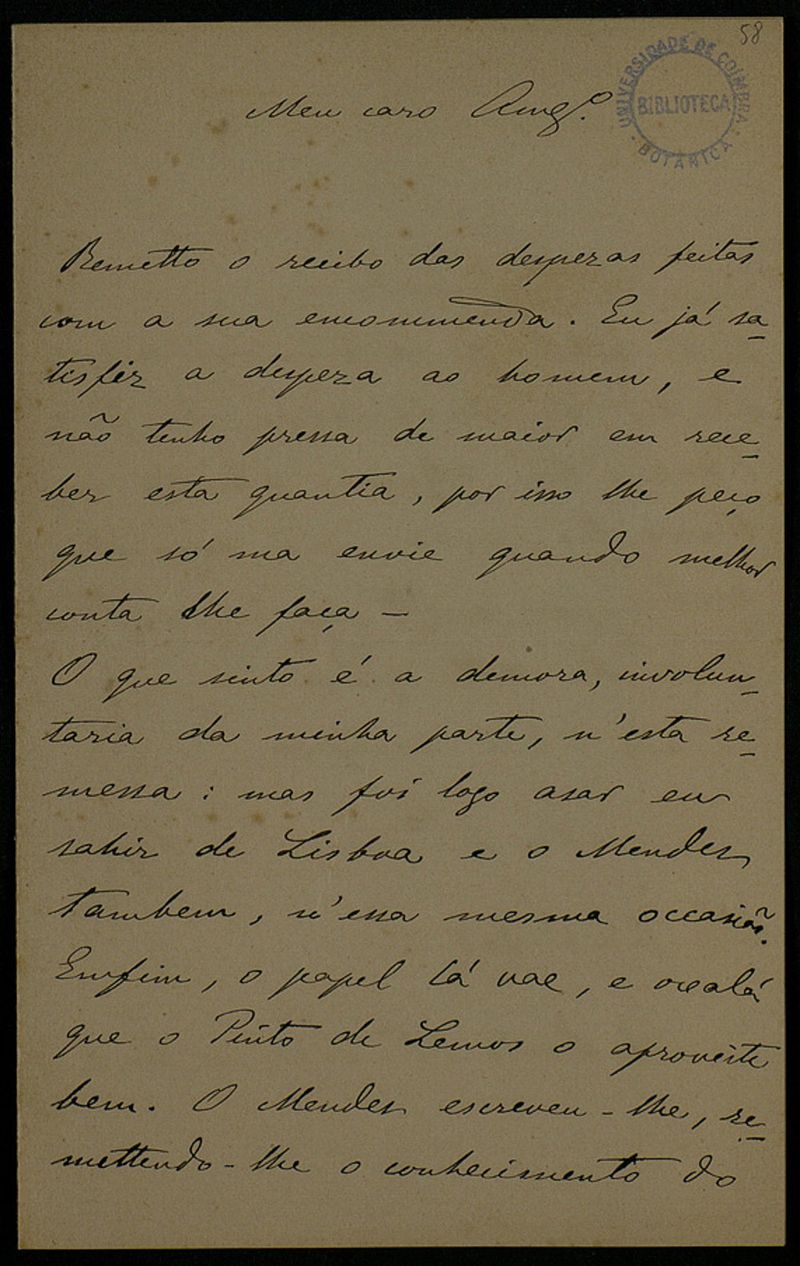 58
UNIVERSIDADE DE COIMBRA
BIBLIOTECA
BOTANICA
Meu caro Amgº.
Remetto o recibo das despezas feitas
com a sua encommenda. Eu já sa-
tisfiz a despeza ao homem, e
não tenho pressa de maior em rece-
ber esta quantia, por isso lhe peço
que só ma envie quando melhor
conta lhe faça —
O que sinto é a demora, involun-
taria da minha parte, n'esta re-
messa: mas foi logo asar eu
sahir de Lisboa e o Mendes
tambem, n'essa mesma occasião.
Emfim, o papel lá vae, e oxalá
que o Pinto de Lemos o aproveite
bem. O Mendes escreveu-lhe, re-
mettendo-lhe o conhecimento do